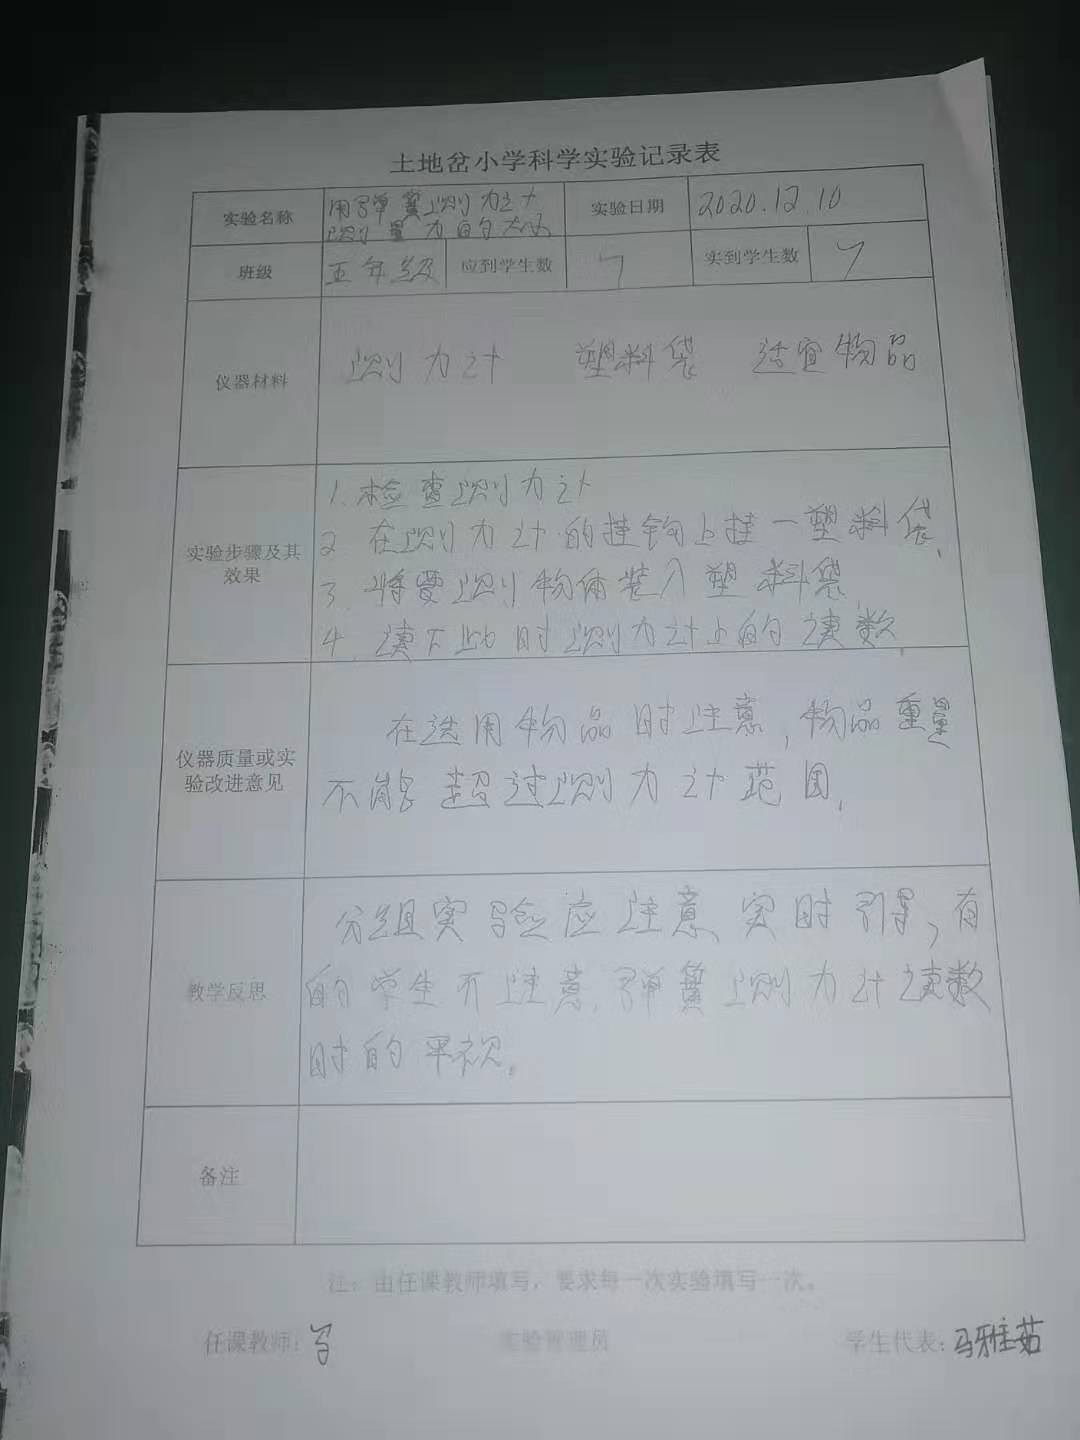 土地岔小学科学实验记录表
实验名称
用弹簧测力计
测量力的大小
实验日期
2020.12.10
班级
五年级
应到学生数
7
实到学生数
7
仪器材料
测力计 塑料袋 适宜物品
实验步骤及其
效果
1.检查测力计
2 在测力计的挂钩上挂一塑料袋.
3.将要测物体装入塑料袋
4.读下此时测力计上的读数.
仪器质量或实
验改进意见
在选用物品时注意,物品重量
不能超过测力计范围.
教学反思
分组实验应注意、实时引导,有
的学生不注意.弹簧测力计读数
时的平视.
备注
注:由任课教师填写,要求每一次实验填写一次。
任课教师:
实验管理员
学生代表:马雅茹